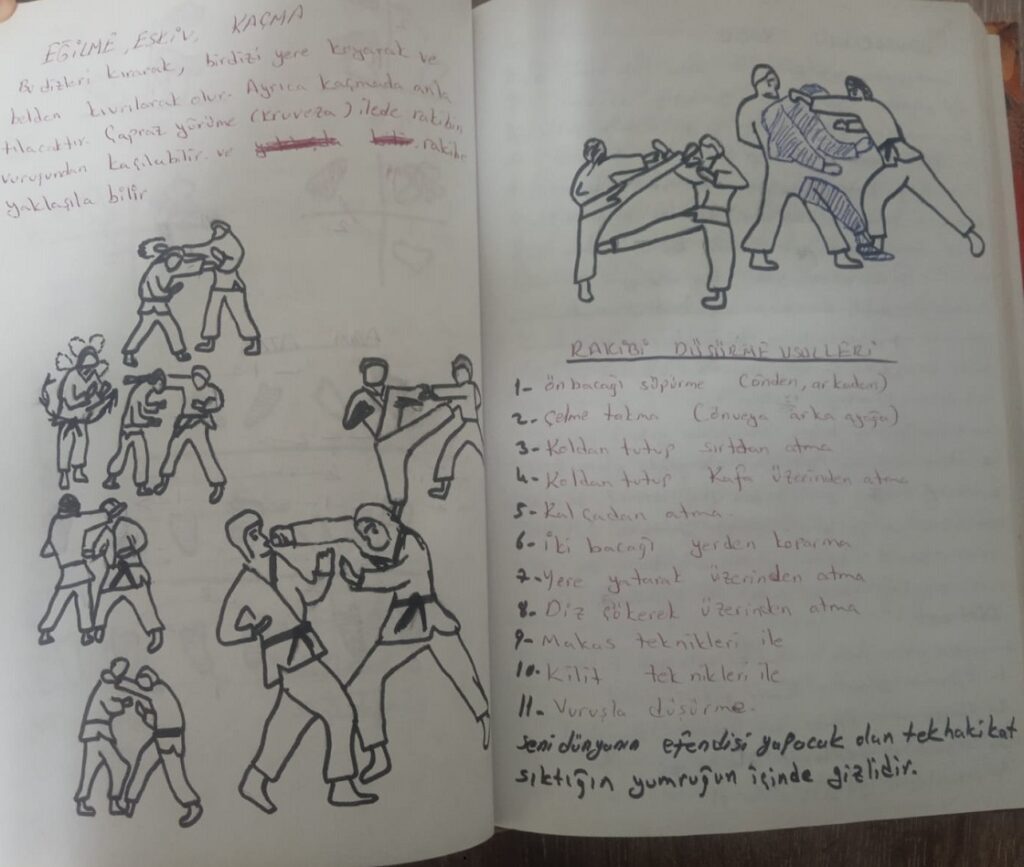 EĞİLME, ESKİV, KAÇMA
Bu dizleri kırarak, birdizi yere koyarak ve
belden kıvrılarak olur. Ayrıca kaçmada anla
tılacaktır. Çapraz yürüme (kruveza) ilede rakibin
vuruşundan kaçılabilir. ve rakibe
yaklaşıla bilir
RAKİBİ DÜŞÜRME USULLERİ
1- ön bacağı süpürme (önden, arkadan)
2- Çelme takma (önveya arka ayağa)
3- Koldan tutup sırtdan atma
4- Koldan tutup Kafa üzerinden atma
5- Kalçadan atma.
6- İki bacağı yerden koparma
7- Yere yatarak üzerinden atma
8- Diz çökerek üzerinden atma
9- Makas teknikleri ile
10- Kilit teknikleri ile
11- Vuruşla düşürme.
seni dünyanın efendisi yapacak olan tek hakikat
sıktığın yumruğun içinde gizlidir.